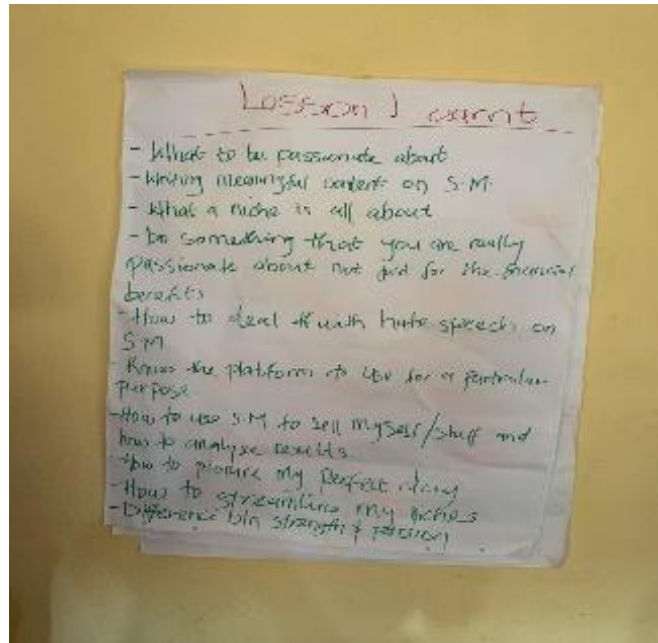 Lesson I learnt
- What to be passionate about
- Writing meaningful content on S.M.
- What a niche is all about
- Do something that you are really
passionate about not just for the financial
benefits
- How to deal with hate speech on
S.M
- Know the platform to use for a particular
purpose
- How to use S.M to sell myself/stuff and
how to analyze results
- How to picture my perfect
- How to streamline my niches
- Difference b/n strength & passion